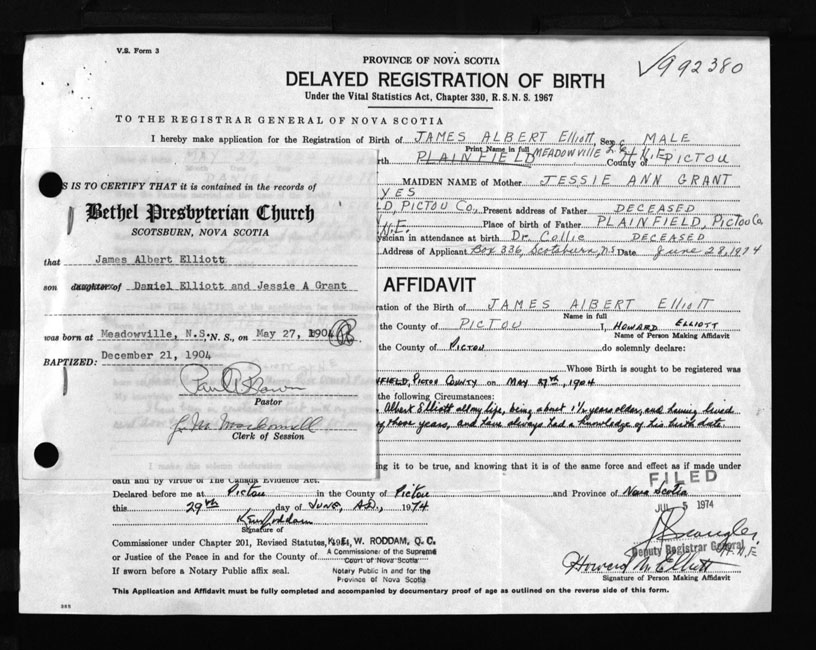 V.S. Form 3
√992380
PROVINCE OF NOVA SCOTIA
DELAYED REGISTRATION OF BIRTH
Under the Vital Statistics Act, Chapter 330, R.S.N.S. 1967
TO THE REGISTRAR GENERAL OF NOVA SCOTIA
I hereby make application for the Registration of Birth of JAMES ALBERT Elliott, Sex MALE
Print Name in full
rth PLAINFIELD MEADOWVILLE H.N.E County of PICTOU
MAIDEN NAME of Mother JESSIE ANN GRANT
YES
LD, PICTOU Co., Present address of Father DECEASED
N.E. Place of birth of Father PLAINFIELD, PICTOU Co
ysician in attendance at birth Dr. Collie DECEASED
Address of Applicant Box 336, Scotsburn, N.S Date June 28, 1974
THIS IS TO CERTIFY THAT it is contained in the records of
Bethel Presbyterian Church
SCOTSBURN, NOVA SCOTIA
that James Albert Elliott
son daughter of Daniel Elliott and Jessie A Grant
was born at Meadowville, N.S., N.S., on May 27, 1904
BAPTIZED: December 21, 1904
Pastor
Clerk of Session
AFFIDAVIT
ration of the Birth of JAMES AlBERT Elliott
Name in full
the County of PICTOU I, HOWARD ELLIOTT
Name of Person Making Affidavit
the County of Pictou do solemnly declare:
Whose Birth is sought to be registered was
NFIELD, PICTOU COUNTY on MAY 27th, 1904
the following Circumstances:
Albert Elliott all my life, being about 1½ years older, and having lived
of those years, and have always had a knowledge of his birth date.
ing it to be true, and knowing that it is of the same force and effect as if made under
oath and by virtue of The Canada Evidence Act.
FILED
Declared before me at Pictou in the County of Pictou and Province of Nova Scotia
JUL 5 1974
this 29th day of JUNE, A.D., 1974
Signature of
Deputy Registrar General
H.N.E
Commissioner under Chapter 201, Revised Statutes,
K. E. W. RODDAM, Q. C.
or Justice of the Peace in and for the County of
A Commissioner of the Supreme
Court of Nova Scotia
Howard N. Elliott
If sworn before a Notary Public affix seal.
Notary Public in and for the
Province of Nova Scotia
Signature of Person Making Affidavit
This Application and Affidavit must be fully completed and accompanied by documentary proof of age as outlined on the reverse side of this form.